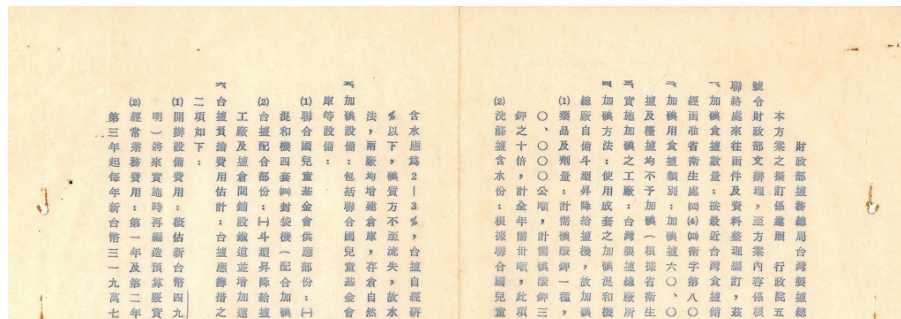 財政部鹽務總局台灣製鹽總
本方案之擬訂係遵照　行政院五
號令財政部文辦理，至方案內容係根
聯絡處來往函件及資料整理編訂，茲
一、加碘食鹽數量：依最近台灣食鹽銷
經函准省衛生處㈣衛字第八〇
二、加碘用食鹽類別：加碘鹽六〇、〇
鹽及機鹽均不予加碘（根據省衛生
三、實施加碘之工廠：台灣製鹽總廠所
四、加碘方法：使用成套之加碘混和機
總廠自備斗型昇降給鹽機，故加碘
(1)藥品及劑量：計需碘酸鉀一種，
〇、〇〇〇公噸，計需碘酸鉀三
鉀之十倍，計全年需卅噸，此項
(2)洗滌鹽含水份：根據聯合國兒童
含水應為2—3%，台鹽自經研
%以下，碘質方不至流失，故水
法，兩廠均增建倉庫，存倉自然
五、加碘設備：包括聯合國兒童基金會
庫等設備：
(1)聯合國兒童基金會供應部份：㈠
混和機四套㈣封袋機（配合加碘
(2)台鹽配合部份：㈠斗型昇降給鹽
工廠及鹽倉間鋪設鐵道並增加運
六、台鹽負擔費用估計：台鹽應籌措之
二項如下：
(1)開辦設備費用：概估新台幣四九
明）將來實施時再編造預算覈實
(2)經常業務費用：第一年及第二年
第三年起每年新台幣三一九萬七